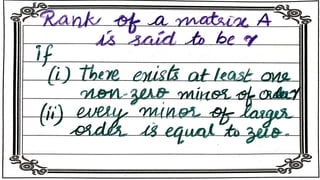 Rank of a matrix A
is said to be r
if
(i) There exists at least one
non-zero minor of order r
(ii) every minor of larger
order is equal to zero.